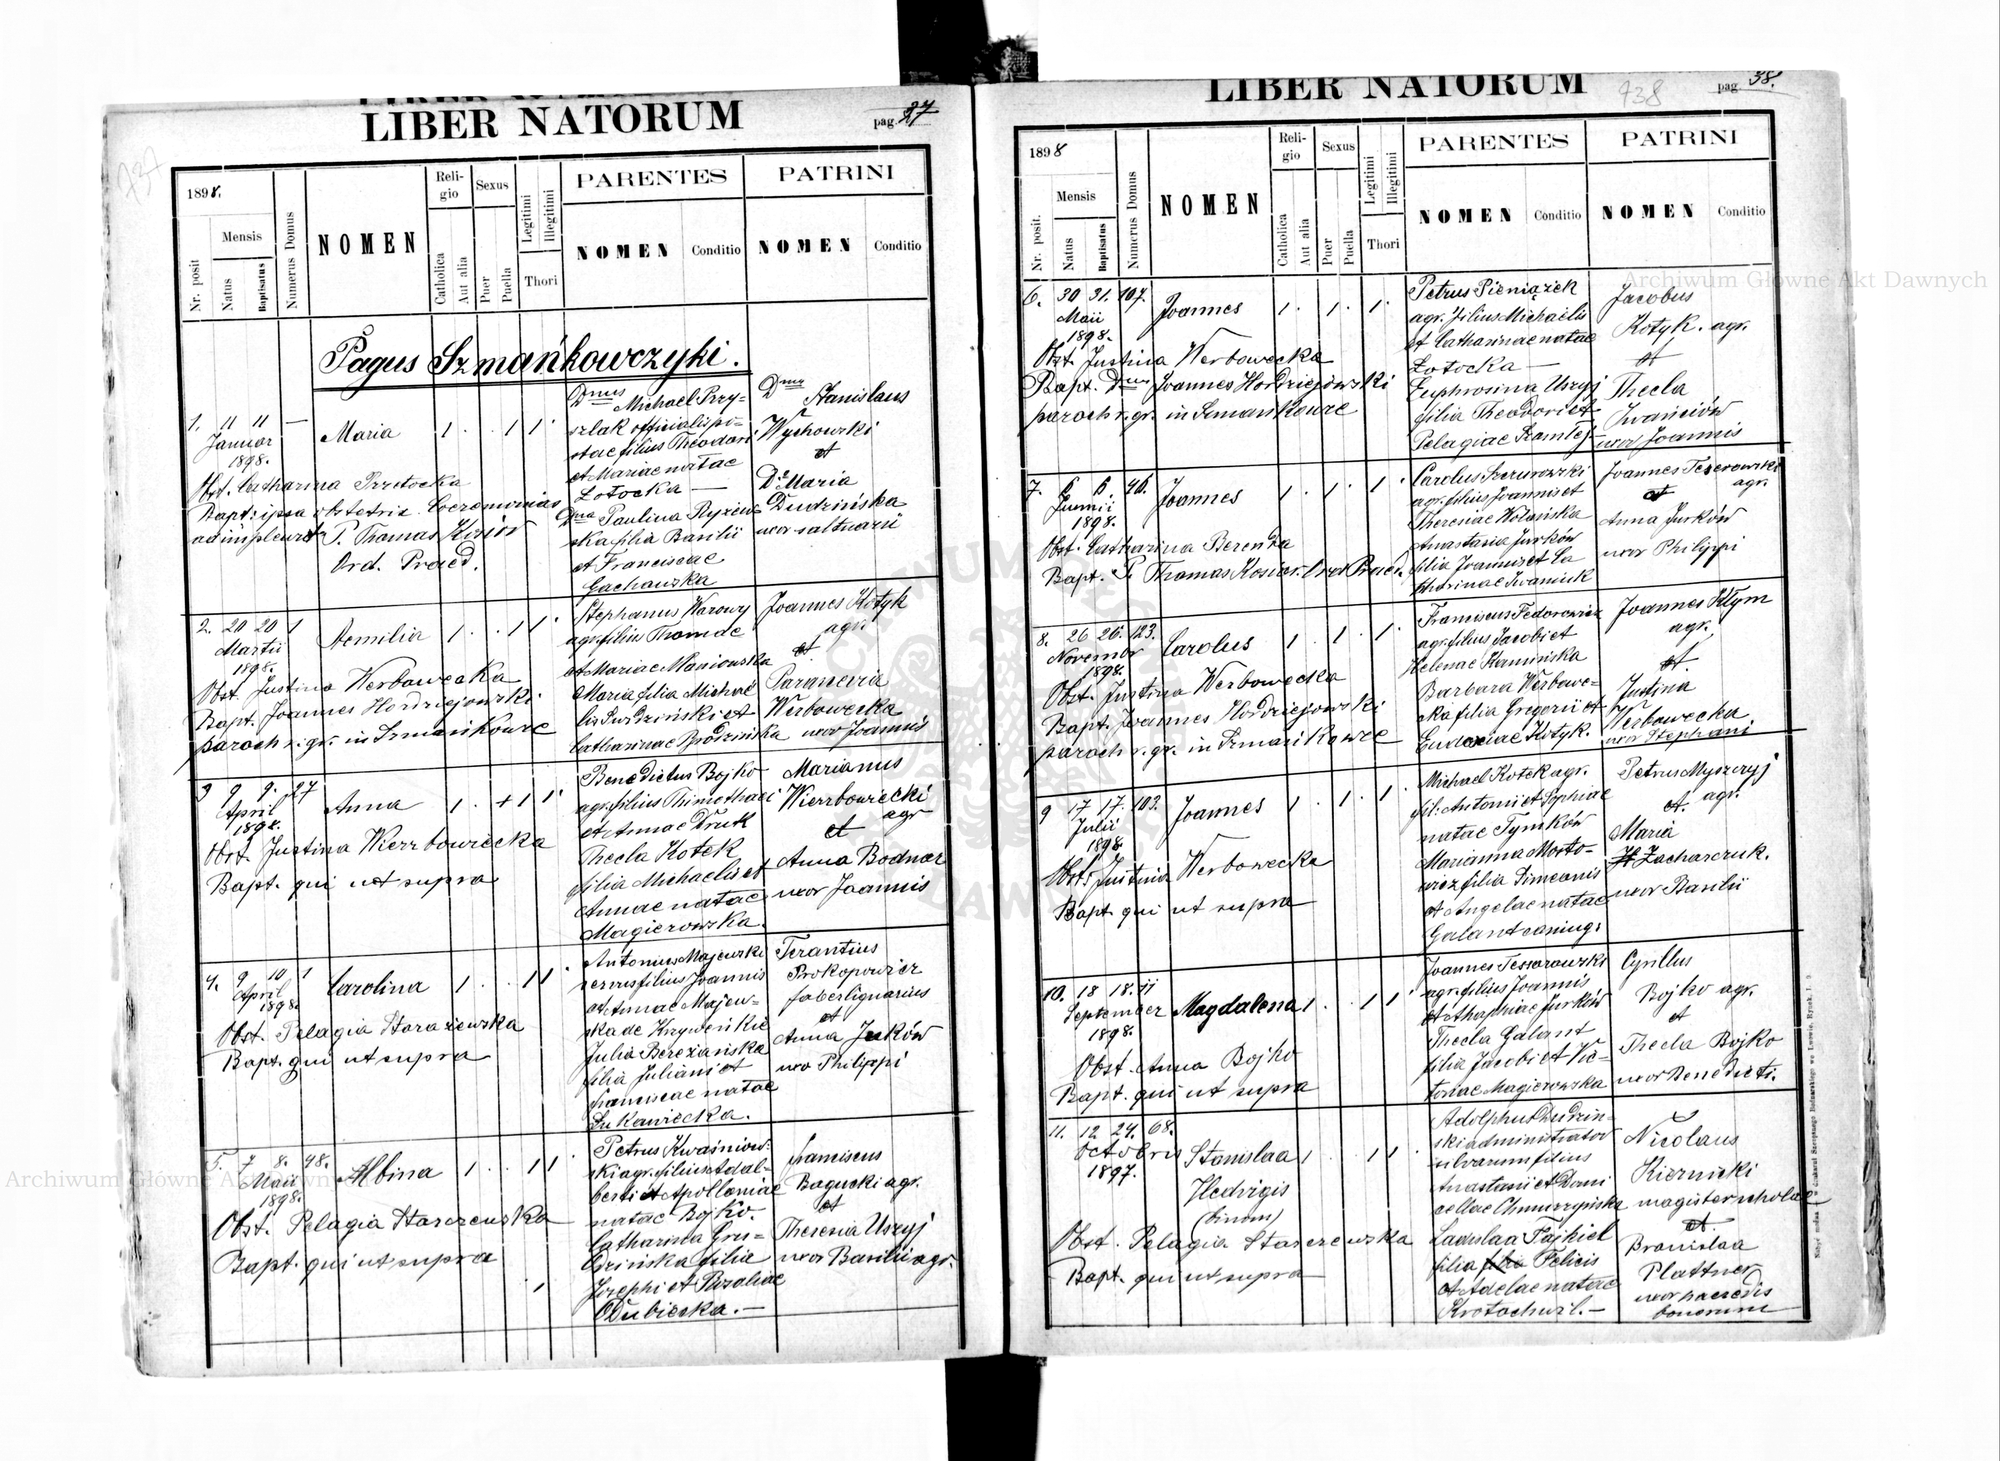 LIBER NATORUM
pag. 37
1898.
Nr. posit
Mensis
Natus
Baptisatus
Numerus Domus
NOMEN
Religio
Catholica
Aut alia
Sexus
Puer
Puella
Legitimi
Illegitimi
Thori
PARENTES
NOMEN
Conditio
PATRINI
NOMEN
Conditio
Pagus Szmańkowczyki.
1. 11 11 —
Januar
1898.
Maria
1 . . 1 1 .
Obst. Catharina Przetocka
Bapt: ipsa obstetrix Ceremonias
adimplevit P. Thomas Kosior
Ord. Praed.
Dnus Michael Przy-
szlak officialis po-
stae filius Theodori
et Mariae natae
Łotocka —
Dna Paulina Ryzew-
ska filia Basilii
et Franciscae
Gachauska
Dnus Stanislaus
Wychowski
et
Da Maria
Dudzińska
uxor saltuarii
2. 20 20 1
Martii
1898.
Aemilia
1 . . 1 1 .
Obst. Justina Werbowecka
Bapt. Joannes Hordziejowski
paroch r. gr. in Szmańkowce
Stephanus Warowy
agr. filius Thomae
et Mariae Maniowska
Maria filia Michae-
lis Swidziński et
Catharinae Brodzińska
Joannes Kotyk
agr.
et
Parancvia
Werbowecka
uxor Joannis
3 9 9. 27
April
1898.
Anna
1 . + 1 1 .
Obst. Justina Wierzbowiecka
Bapt. qui ut supra
Benedictus Bojko
agr. filius Thimothaei
et Annae Druk
Thecla Kotek
filia Michaelis et
Annae natae
Magierowska.
Marianus
Wierzbowiecki
agr
et
Anna Bodnar
uxor Joannis
4. 9 10 1
April
1898.
Carolina
1 . . 1 1 .
Obst. Pelagia Starażewska
Bapt. qui ut supra
Antonius Majewski
servus filius Joannis
et Annae Majew-
ska de Krzyweńkie
Julia Bereżańska
filia Juliani et
Franciscae natae
Łukawiecka.
Terantius
Prokopowicz
faber lignarius
et
Anna Jurków
uxo Philippi
5. 7 8. 48.
Maii
1898.
Albina
1 . . 1 1 .
Obst. Pelagia Starczewska
Bapt. qui ut supra
Petrus Kwaśniow-
ski agr. filius Adal-
berti et Apolloniae
natae Bojko.
Catharina Gres-
Filia
Josephi et Rosaliae
Dubiecka. —
Franciscus
Bagucki agr.
et
Theresia Uszyj
uxor Basilii agr.
LIBER NATORUM
738
pag. 38.
1898
Nr. posit.
Mensis
Natus
Baptisatus
Numerus Domus
NOMEN
Religio
Catholica
Aut alia
Sexus
Puer
Puella
Legitimi
Illegitimi
Thori
PARENTES
NOMEN
Conditio
PATRINI
NOMEN
Conditio
6. 30 31. 107.
Maii
1898.
Joannes
1 . 1 . 1 .
Obst. Justina Werbowecka
Bapt. Dnus Joannes Hordziejowski
paroch r. gr. in Szmańkowce
Petrus Pieniążek
agr. filius Michaelis
et Catharinae natae
Łotocka —
Euphrosina Uszyj
filia Theodori et
Pelagiae
Jacobus
Kotyk. agr.
et
Thecla
Iwańciów
uxor Joannis
7. 6 6. 46.
Junii
1898.
Joannes
1 . 1 . 1 .
Obst. Catharina Berenza
Bapt. P. Thomas Kosior. Ord Praed.
Carolus Szczurowski
agr. filius Joannis et
Theresiae Wolańska
Anastasia Jurków
filia Joannis et Ca
tharinae Iwaniuk
Joannes Teserowski
agr.
et
Anna Jurków
uxor Philippi
8. 26 26. 123.
Novembr
1898.
Carolus
1 . 1 . 1 .
Obst. Justina Werbowecka
Bapt. Joannes Hordziejowski
paroch r. gr. in Szmańkowce
Franciscus Fedorowicz
agr. filius Jacobi et
Helenae Kamińska
Barbara Werbowe-
cka filia Gregorii et
Eudoxiae Kotyk.
Joannes Klym
agr.
et.
Justina
Werbowecka.
uxor Stephani.
9 17 17. 102.
Julii
1898.
Joannes
1 . 1 . 1 .
Obst. Justina Werbowecka
Bapt. qui ut supra
Michael Kotek agr.
fil. Antonii et Sophiae
natae Tymków
Marianna Mosto-
wicz filia Simeonis
et Angelae natae
Galant coniug.
Petrus Myszczyj
et. agr.
Maria
Zacharczuk.
uxor Basilii
10. 18 18. 11
September
1898.
Magdalena
1 . . 1 1 .
Obst. Anna Bojko
Bapt. qui ut supra
Joannes Tessarowski
agr. filius Joannis
et Agaphiae Jurków
Thecla Galant
filia Jacobi et Vic-
toriae Magierowska
Cyrillus
Bojko agr.
et
Thecla Bojko
uxor Benedicti.
11. 12 24. 68.
Octobris
1897.
Stanislaa
Hedvigis
(binom)
1 . . 1 1 .
Obst. Pelagia Starczewska
Bapt. qui ut supra
Adolphus Dudzin-
ski administrator
silvarum filius
Anastasii et Dani
cellae Chmurzyńska
Ladislaa Fajkiel
filia Felicis
et Adelae natae
Krotochwil. —
Nicolaus
Kiernicki
magister scholae
et.
Bronislaa
Plattner
uxor haeredis
bonorum
Archiwum Główne Akt Dawnych
Archiwum Główne Akt Dawnych